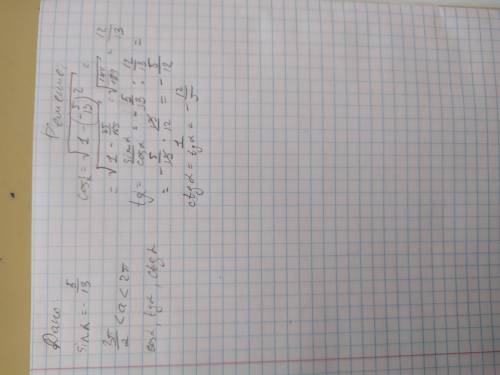 Дано
sin α = - 5/13
3π/2 < α < 2π
cos α, tg α, ctg α
Решение:
cos α = √(1 - (-5/13)²) =
= √(1 - 25/169) = √(144/169) = 12/13
tg = sin α/cos α = - 5/13 : 12/13 =
= - 5/13 · 13/12 = - 5/12
ctg α = 1/tg α = - 12/5